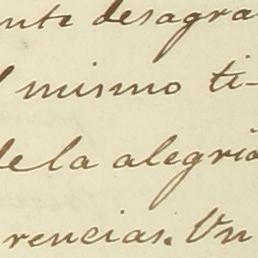 nte desagra
l mismo ti-
de la alegria
rencias. Un